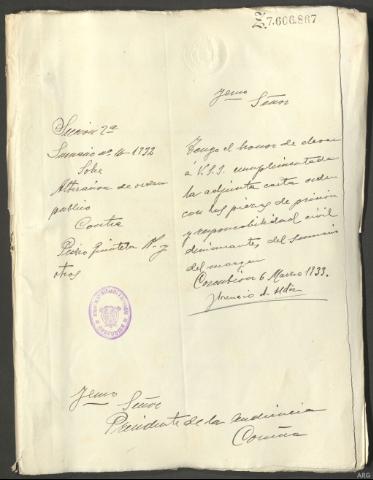 7.606.867
Ilmo
Señor
Sección 2ª
Sumario nº 16-1932
Sobre
Alteración de orden
publico
Contra
Pedro Quintela Nº y
otros
Tengo el honor de elevar
á V.S.I. cumplimentada
la adjunta carta orden
con las piezas de prisión
y responsabilidad civil
dimanantes del sumario
del margen
Corcubión 6 Marzo 1933.
Ilmo
Señor
Presidente de la Audiencia
Coruña
ARG